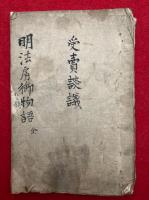 受賣談議
明法房御物語 全